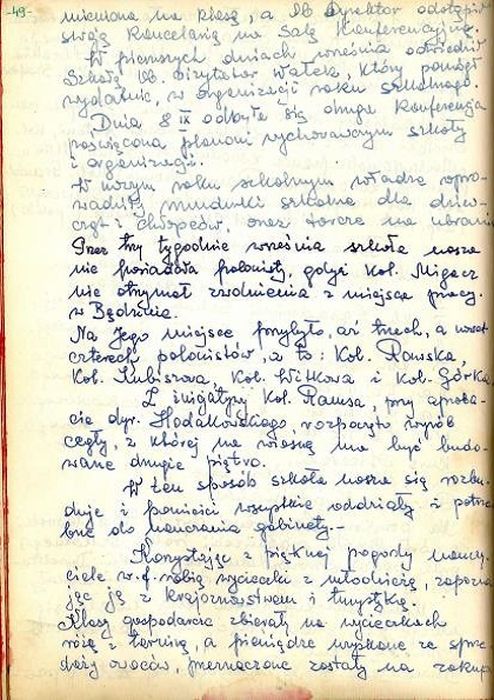 -49-
mieniona na klasę, a Ob. Dyrektor odstąpił
swoją kancelarię na Salę Konferencyjną.
W pierwszych dniach września odwiedził
Szkołę Ob. Wizytator Wałek, który pomógł
wydatnie, w organizacji roku szkolnego.
Dnia 8 IX odbyła się druga Konferencja
poświęcona planom wychowawczym szkoły
i organizacji.
W nowym roku szkolnym władze wpro-
wadziły mundurki szkolne dla dziew-
cząt i chłopców, oraz tarcze na ubrania
Przez trzy tygodnie września szkoła nasza
nie posiadała polonisty, gdyż Kol. Migacz
nie otrzymał zwolnienia z miejsca pracy
w Będzinie.
Na Jego miejsce przybyło, aż trzech, a nawet
czterech polonistów, a to: Kol. Rawska,
Kol. Kubiszowa, Kol. Witkowa i Kol. Górka.
Z inicjatywy Kol. Ramsa, przy aproba-
cie dyr. Hodakowskiego, rozpoczęto wyrób
cegły, z której na wiosnę ma być budo-
wane drugie piętro.
W ten sposób szkoła nasza się rozbu-
duje i pomieści wszystkie oddziały i potrze-
bne do nauczania gabinety.-
Korzystając z pięknej pogody nauczy-
ciele w.f. robią wycieczki z młodzieżą, zapozna-
jąc ją z krajoznawstwem i turystyką.
Klasy gospodarcze zbierały na wycieczkach
różę z tarniną, a pieniądze uzyskane ze sprze-
daży owoców, przeznaczone zostały na zakup